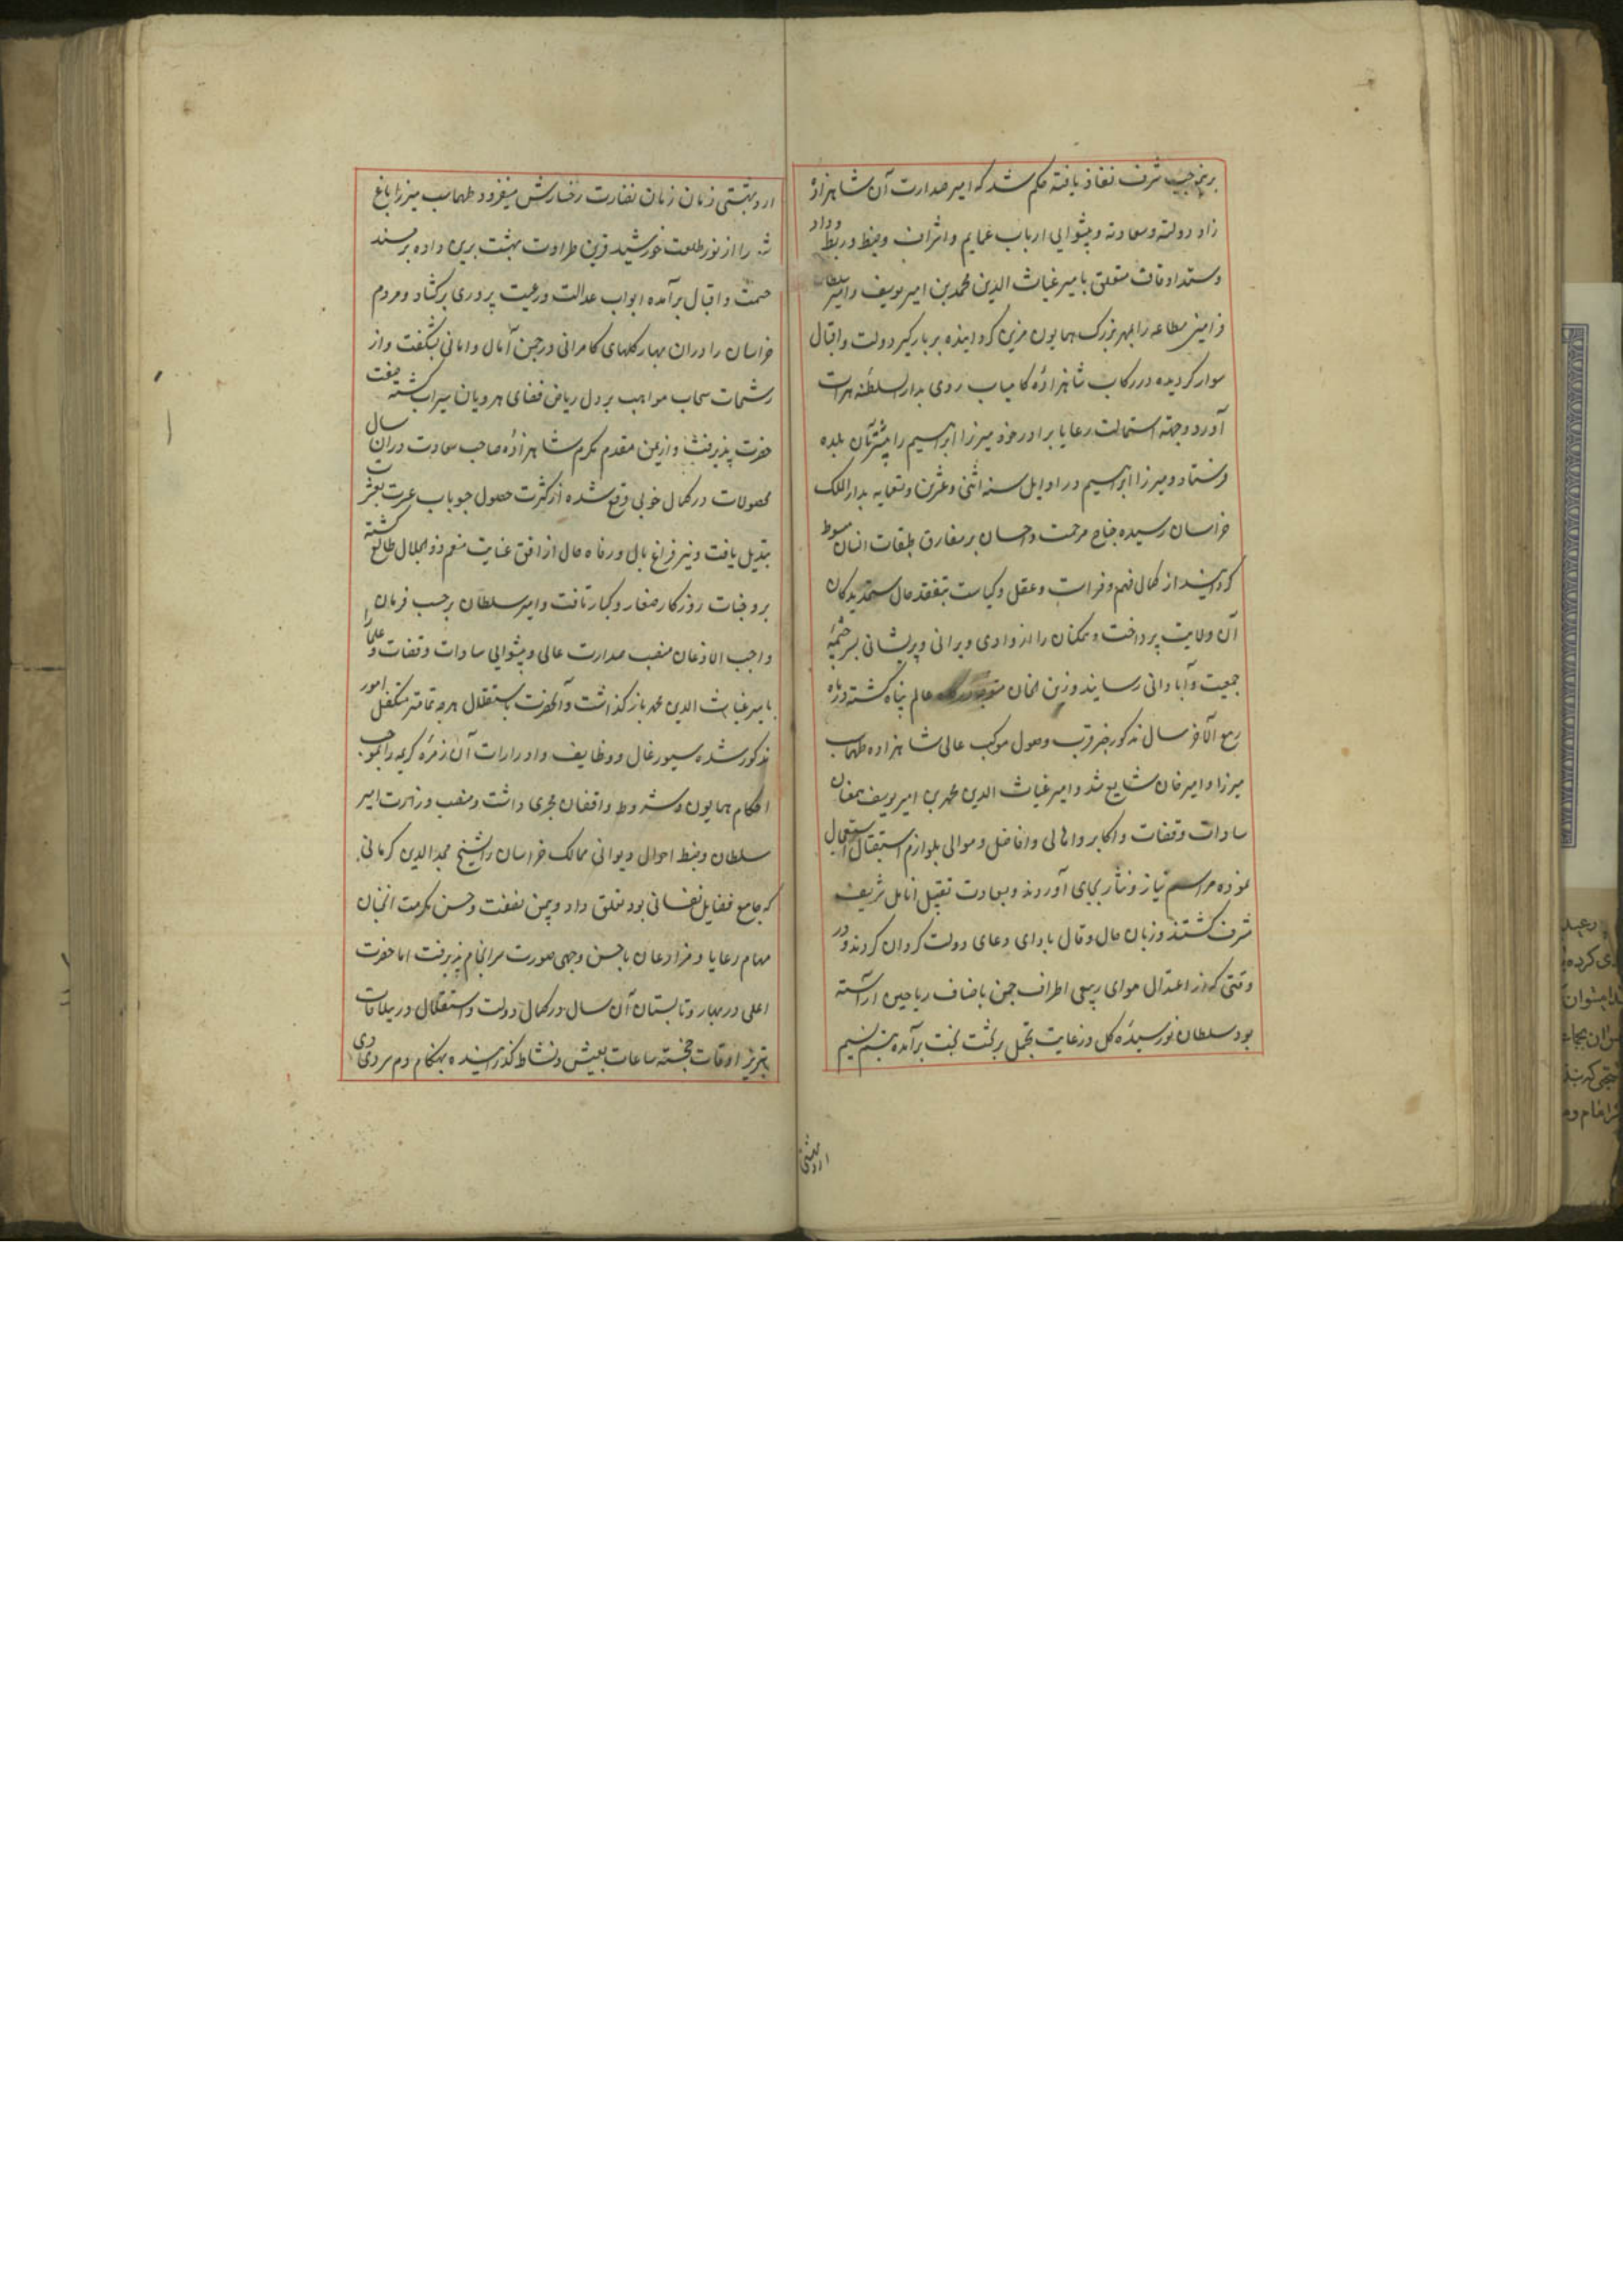 برینموجب شرف نفاذ یافته حکم شد که امیر صدارت آن شاهزاده
زاد دولته وسعادته و پیشوایی ارباب عمایم واشراف وضبط وربط و داد
وستد اوقاف متعلق بامیر غیاث الدین محمد بن امیر یوسف وامیر سلطان
فرامین مطاعه را بمهر بزرک همایون مزین کردانیده بر بارکیر دولت واقبال
سوار کردیده در رکاب شاهزاده کامیاب روی بدار السلطنه هرات
آورد وجهته استمالت رعایا برادر خود میرزا ابراهیم را پیشتر بآن بلده
فرستاد ومیرزا ابراهیم در اوایل سنه اثنی وعشرین وتسعمایه بدار الملک
خراسان رسیده جناح مرحمت واحسان بر مفارق طبقات انسان مبسوط
کردانید از کمال فهم وفراست وعقل وکیاست بتفقد حال ستمدیدکان
آن ولایت پرداخت وممکنان را از وادی ویرانی وپریشانی بسرچشمه
جمعیت وآبادانی رسانید وزین الخان عالم پناه کشته ودر ماه
ربیع الآخر سال مذکور خبر قرب وصول موکب عالی شاهزاده طهماسب
میرزا وامیر خان شایع شد وامیر غیاث الدین محمد بن امیر یوسف بمعان
سادات وقضات واکابر واهالی وافاضل وموالی بلوازم استقبال استعجال
نموده مراسم نیاز ونثار بجای آوردند وبسعادت تقبیل انامل شریف
مشرف کشتند وزبان حال وقال بادای دعای دولت کردان کردند ودر
وقتی که از اعتدال هوای ربیعی اطراف چمن باضاف ریاحین آراسته
بود سلطان نورسیده کل در غایت تجمل بر تخت بخت برآمده بتنسم نسیم
اردیبهشتی
اردیبهشتی زمان زمان نضارت رخسارش میفزود طهماسب میرزا باغ
شهر را از نور طلعت خورشید قرین طراوت بهشت برین داده بر مسند
حشمت واقبال برآمده ابواب عدالت ورعیت پروری برکشاد ومردم
خراسان را در ان بهار کلهای کامرانی در چمن آمال وامانی بشکفت واز
رشحات سحاب مواهب بر دل ریاض فضای هرویان سیراب کشته صفت
خضرت پذیرفت واز یمن مقدم مکرم شاهزاده صاحب سعادت در ان سال
محصولات در کمال خوبی وقوع شده از کثرت حصول حبوبات عسرت بعشرت
تبدیل یافت ونیر فراغ بال ورفاه حال از افق عنایت منعم ذوالجلال طالع کشته
بر وجنات روزکار صغار وکبار تافت وامیر سلطان بر حسب فرمان
واجب الاذعان منصب صدارت عالی وپیشوایی سادات وقضات وعلما را
بامیر غیاث الدین محمد باز کذاشت وآنحضرت باستقلال هرچه تمامتر متکفل امور
مذکور شده سیورغال ووظایف وادرارات آن زمره کریمه را بموجب
احکام همایون وشروط واقفان مجری داشت ومنصب وزارت امیر
سلطان وضبط احوال دیوانی ممالک خراسان را شیخ مجد الدین کرمانی
که جامع فضایل نفسانی بود تعلق داد وبیمن نصفت وحسن مکرمت انجنان
مهام رعایا ومزارعان باحسن وجهی صورت سرانجام پذیرفت اما حضرت
اعلی در بهار وتابستان آن سال در کمال دولت واستقلال در ییلاقات
تبریز اوقات خجسته ساعات بعیش ونشاط کذرانیده بهنکام دم سردی دی